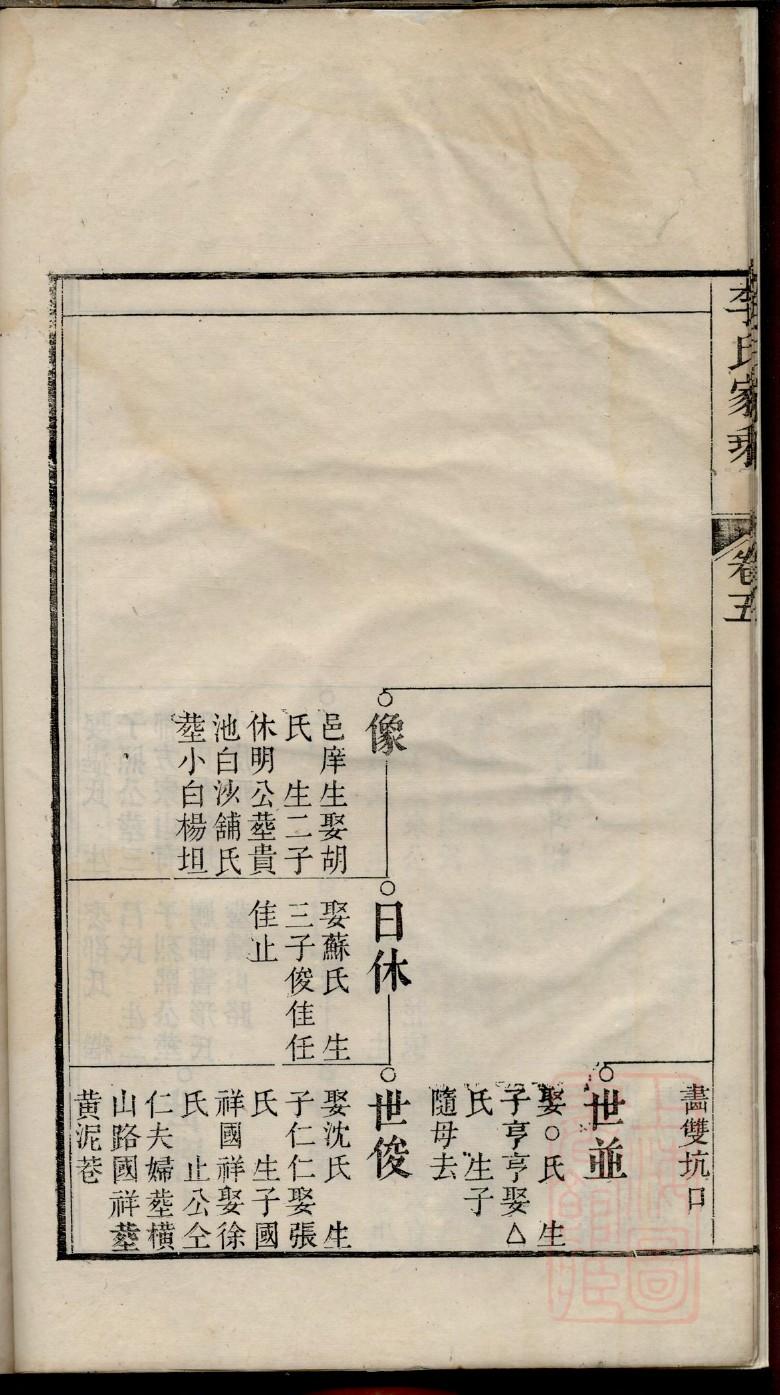 李氏家乘
卷五
畵雙坑口
世並
娶○氏　生
子亨亨娶△
氏　生子
隨母去
像
邑庠生娶胡
氏　生二子
休明公塟貴
池白沙舖氏
塟小白楊坦
日休
娶蘇氏　生
三子俊佳任
佳止
世俊
娶沈氏　生
子仁仁娶張
氏　生子國
祥國祥娶徐
氏　止公仝
仁夫婦塟横
山路國祥塟
黄泥巷